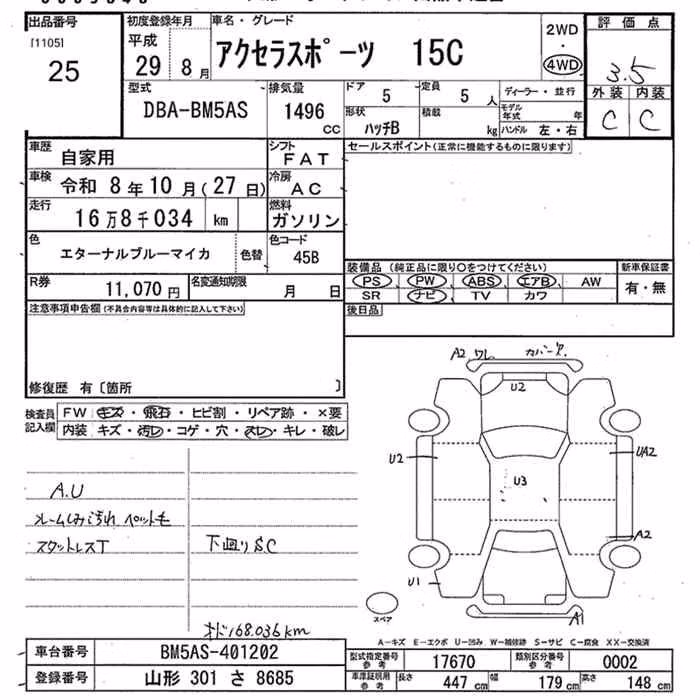 出品番号
[1105]
25
初度登録年月
平成
29 8月
車名・グレード
アクセラスポーツ 15C
2WD
・
4WD
評価点
3.5
外装 内装
C C
型式
DBA-BM5AS
排気量
1496
CC
ドア
5
定員
5人
形状
ハッチB
積載
kg
ディーラー・並行
モデル年式 年
ハンドル 左・右
車歴
自家用
シフト
FAT
セールスポイント(正常に機能するものに限ります)
車検
令和 8年10月(27日)
冷房
AC
走行
16万8千034 km
燃料
ガソリン
色
エターナルブルーマイカ
色替
色コード
45B
R券
11,070円
名変通知期限
月 日
装備品 (純正品に限り○をつけてください)
PS PW ABS エアB AW
SR ナビ TV カワ
新車保証書
有・無
後日品
注意事項申告欄(不具合内容等は具体的に記入して下さい)
修復歴 有〔箇所 〕
検査員記入欄
FW キズ・飛石・ヒビ割・リペア跡・×要
内装 キズ・汚レ・コゲ・穴・スレ・キレ・破レ
A.U
ルームしみ汚れ ペット毛
スタットレスT
下廻りSC
オド168.036km
A2 ワレ カバー欠
U2
U2
UA2
U3
A2
U1
A1
スペア
A-キズ E-エクボ U-凹み W-補修跡 S-サビ C-腐食 XX-交換済
車台番号
BM5AS-401202
登録番号
山形 301 さ 8685
型式指定番号
参考
17670
類別区分番号
参考
0002
車庫証明用
参考
長さ
447 cm
幅
179 cm
高さ
148 cm